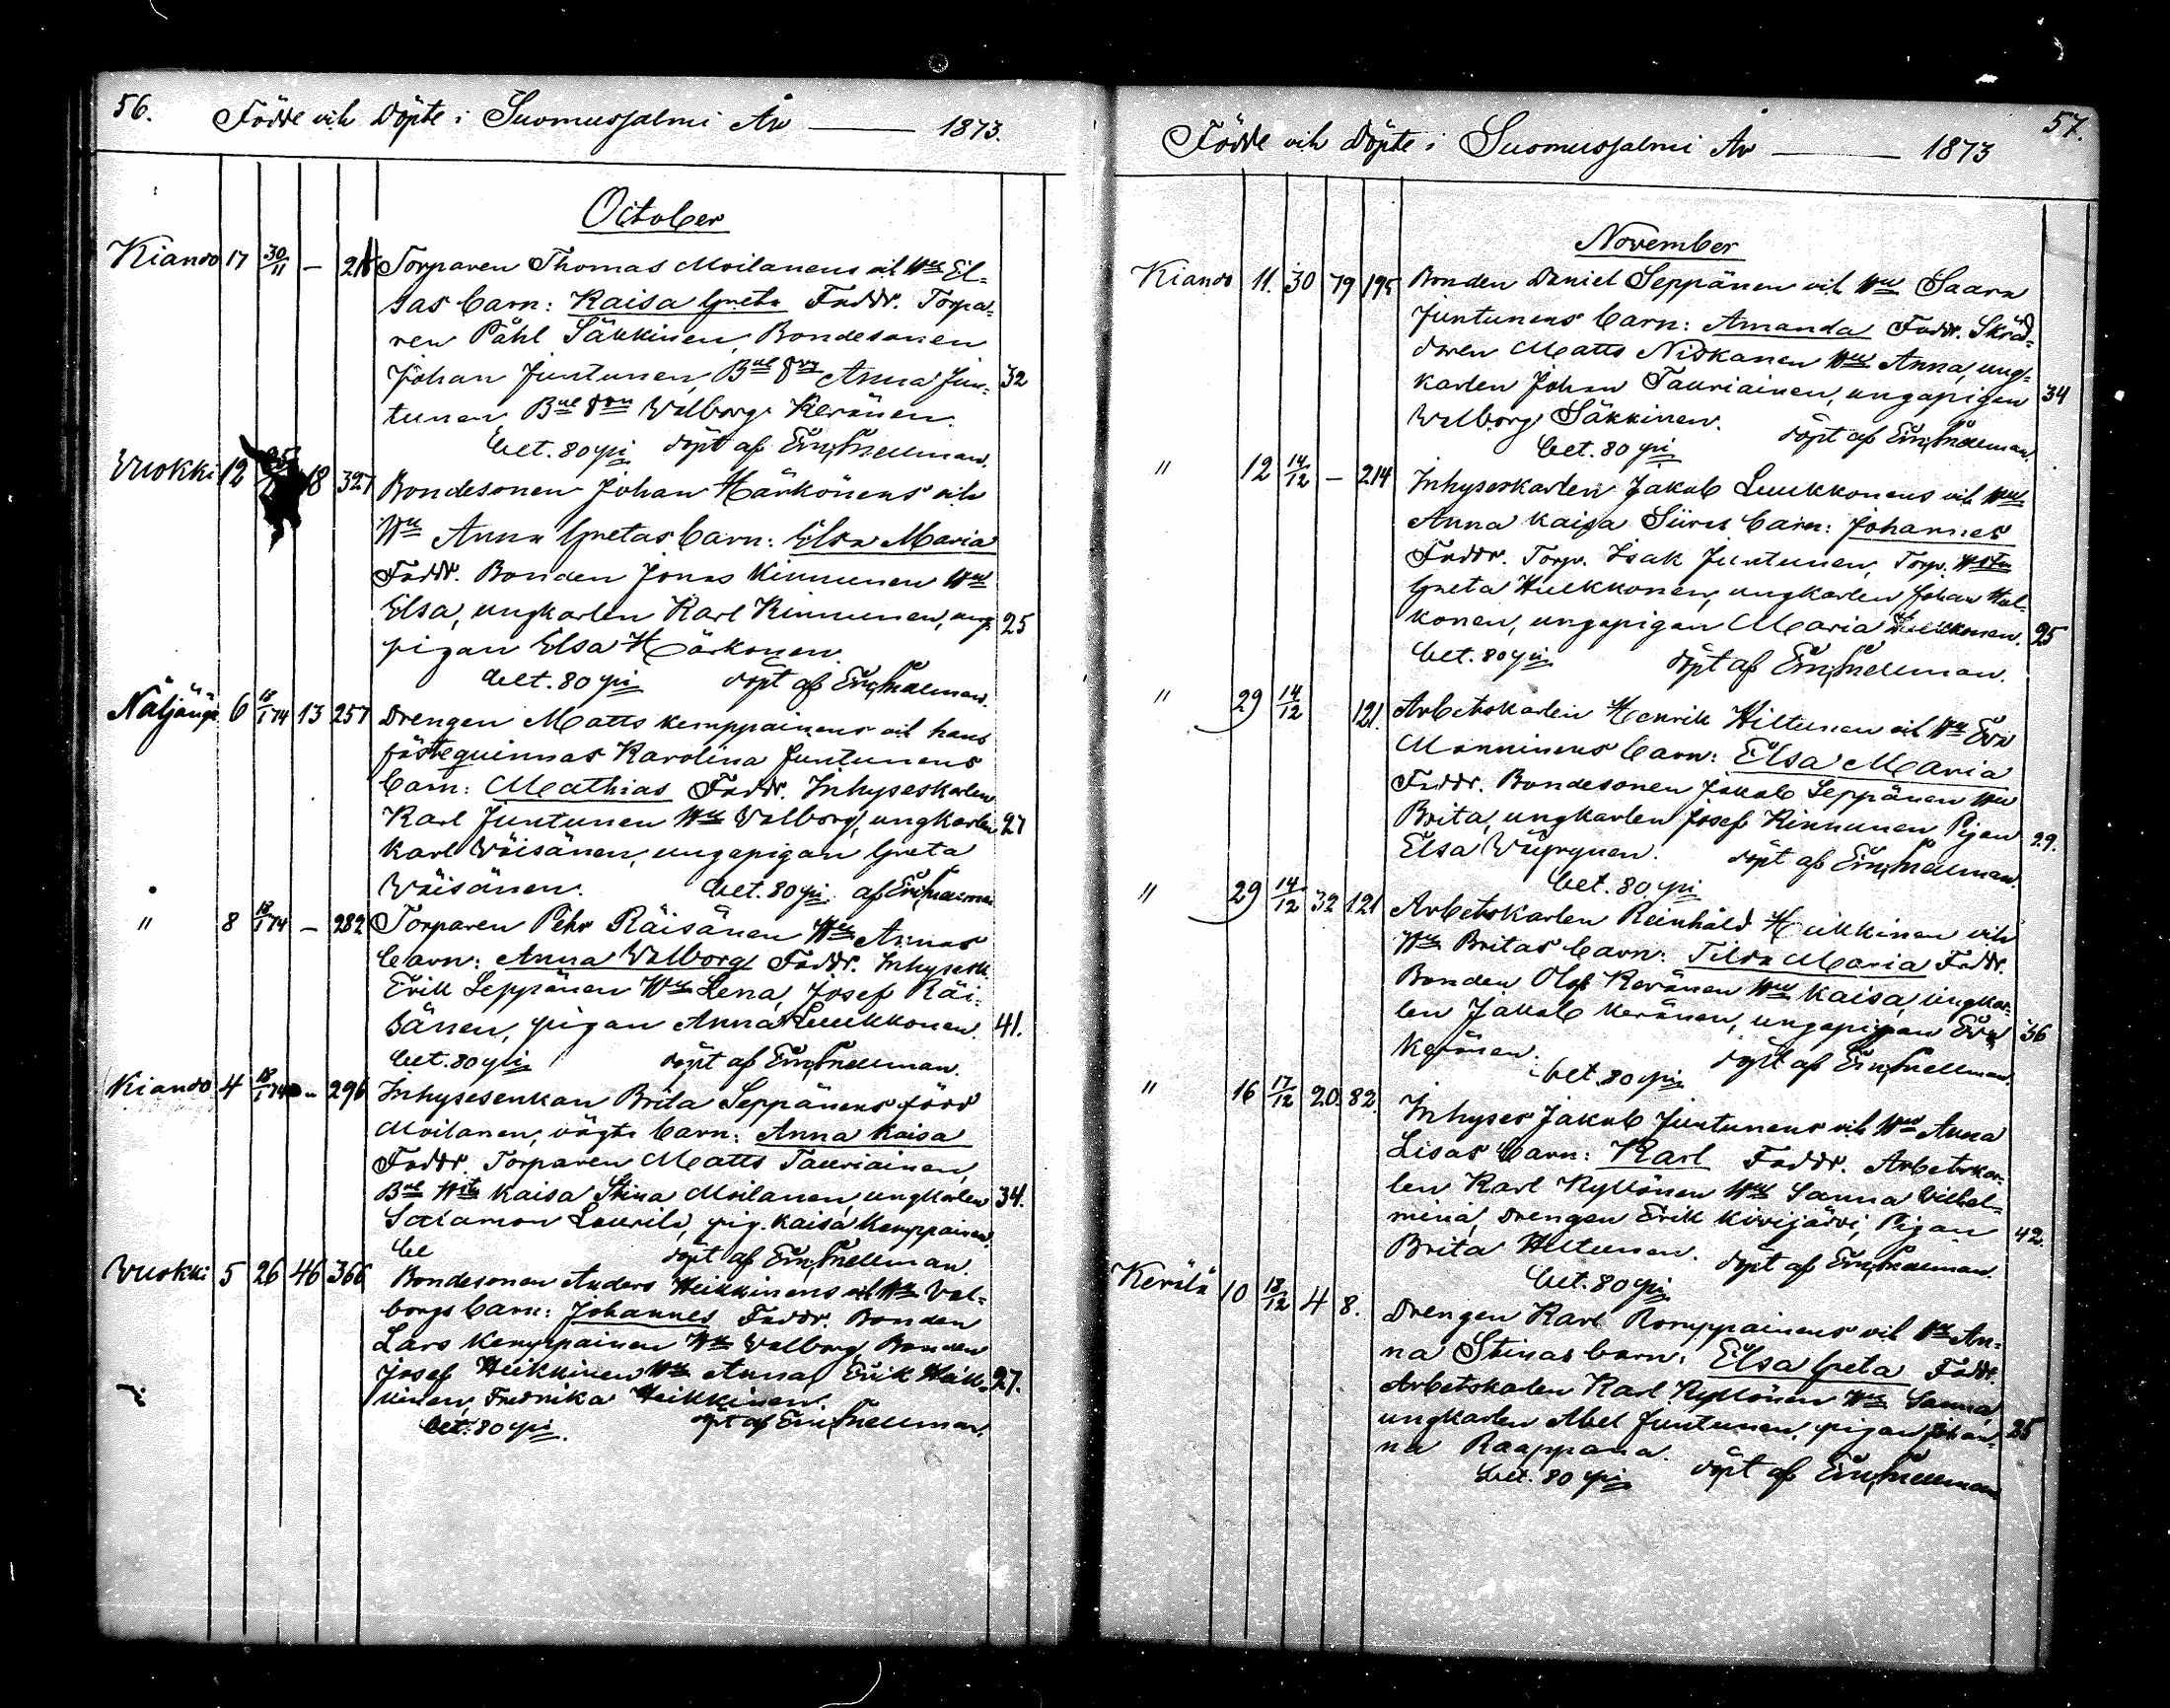 56. Födde och Döpte i Suomussalmi År — 1873.
October
Kiando 17 30/11 — 218 Torparen Thomas Moilanens och Hu El=
sas barn: Kaisa Greta Faddr. Torpa=
ren Påhl Säkkinen, Bondesonen
Johan Juntunen, Bde Drn Anna Jun= 32
tunen Bde don Walborg Keränen.
bet. 80 pi döpt af Em. Snellman.
Vuokki 12 18 327 Bondesonen Johan Härkönens och
Hu Anna Gretas barn: Elsa Maria
Faddr. Bonden Jonas Kinnunen Hu
Elsa, ungkarlen Karl Kinnunen, ung= 25
pigan Elsa Härkönen.
bet. 80 pi döpt af Em. Snellman.
Näljänge 6 18/1 74 13 257 Drengen Matts Kemppainens och hans
fästeqvinnas Karolina Juntunens
barn: Mathias Faddr. Inhyseskarlen
Karl Juntunen Hu Valborg, ungkarlen 27
Karl Wäisänen, ungapigan Greta
Wäisänen. bet. 80 pi af Em. Snellman
" 8 18/1 74 — 282 Torparen Pehr Räisänen Hu Annas
barn: Anna Walborg Faddr. Inhysesk.
Erik Seppänen Hu Lena, Josef Räi=
sänen, pigan Anna Luukkonen. 41.
bet. 80 pi döpt af Em. Snellman.
Kiando 4 18/1 74 — 296 Inhysesenkan Brita Seppänens född
Moilanen, oägta barn: Anna Kaisa
Faddr. Torparen Matts Tauriainen,
Bde Hstu Kaisa Stina Moilanen, ungkarlen 34.
Salamon Laurila, pig. Kaisa Kemppainen.
be döpt af Em. Snellman.
Vuokki 5 26 46 366 Bondesonen Anders Heikkinens och Hu Val=
borgs barn: Johannes Faddr. Bonden
Lars Kemppainen Hu Valborg, Bonden
Josef Heikkinen Hu Anna, Erik Heik= 27.
kinen, Fredrika Heikkinen.
bet. 80 pi. döpt af Em. Snellman.
Födde och Döpte i Suomussalmi År — 1873 57.
November
Kiando 11. 30 79 195 Bonden Daniel Seppänen och Hu Saara
Juntunens barn: Amanda Faddr. Skräd=
daren Matts Niskanen Hu Anna, ung=
karlen Johan Tauriainen, ungapigan 34
Walborg Säkkinen. döpt af Em. Snellman.
bet. 80 pi
" 12 14/12 — 214 Inhyseskarlen Jakob Luukkonens och Hu
Anna Kaisa Siiras barn: Johannes
Faddr. Torp. Isak Juntunen, Torp. Hstu
Greta Hulkkonen, ungkarlen Johan Hul=
konen, ungapigan Maria Luukkonen. 25
bet. 80 pi döpt af Em. Snellman.
" 29 14/12 121. Arbetskarlen Henrik Hiltunen och Hu Eva
Manninens barn: Elsa Maria
Faddr. Bondesonen Jakob Seppänen Hu
Brita, ungkarlen Josef Kinnunen Pigan 29.
Elsa Väyrynen. döpt af Em. Snellman.
bet. 80 pi
" 29 14/12 32 121 Arbetskarlen Reinhåld Heikkinen och
Hu Britas barn: Tilda Maria Faddr.
Bonden Olof Keränen Hu Kaisa, ungkar=
len Jakob Keränen, ungapigan Eva 36
Keränen. döpt af Em. Snellman.
bet. 80 pi
" 16 17/12 20. 82. Inhyses Jakob Juntunens och Hu Anna
Lisas barn: Karl Faddr. Arbetskar=
len Karl Kyllönen Hu Sanna Vilhel=
mina, Drengen Erik Kivijärvi, Pigan 42.
Brita Hiltunen. döpt af Em. Snellman.
bet. 80 pi
Kerälä 10 18/12 4 8. Drengen Karl Romppainens och Hu An=
na Stinas barn: Elsa Greta Faddr.
Arbetskarlen Karl Kyllönen Hu Sanna,
ungkarlen Abel Juntunen, pigan Johan= 25
na Raappana. döpt af Em. Snellman
bet. 80 pi